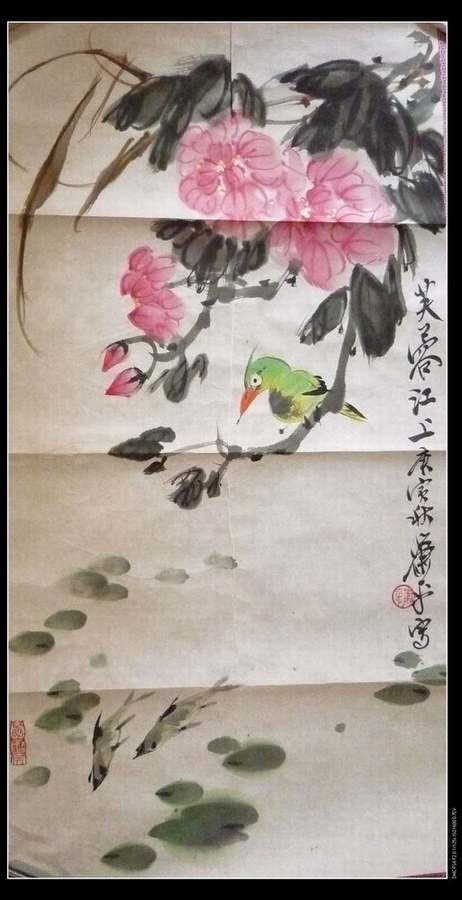 芙蓉江上庚寅秋萧平写